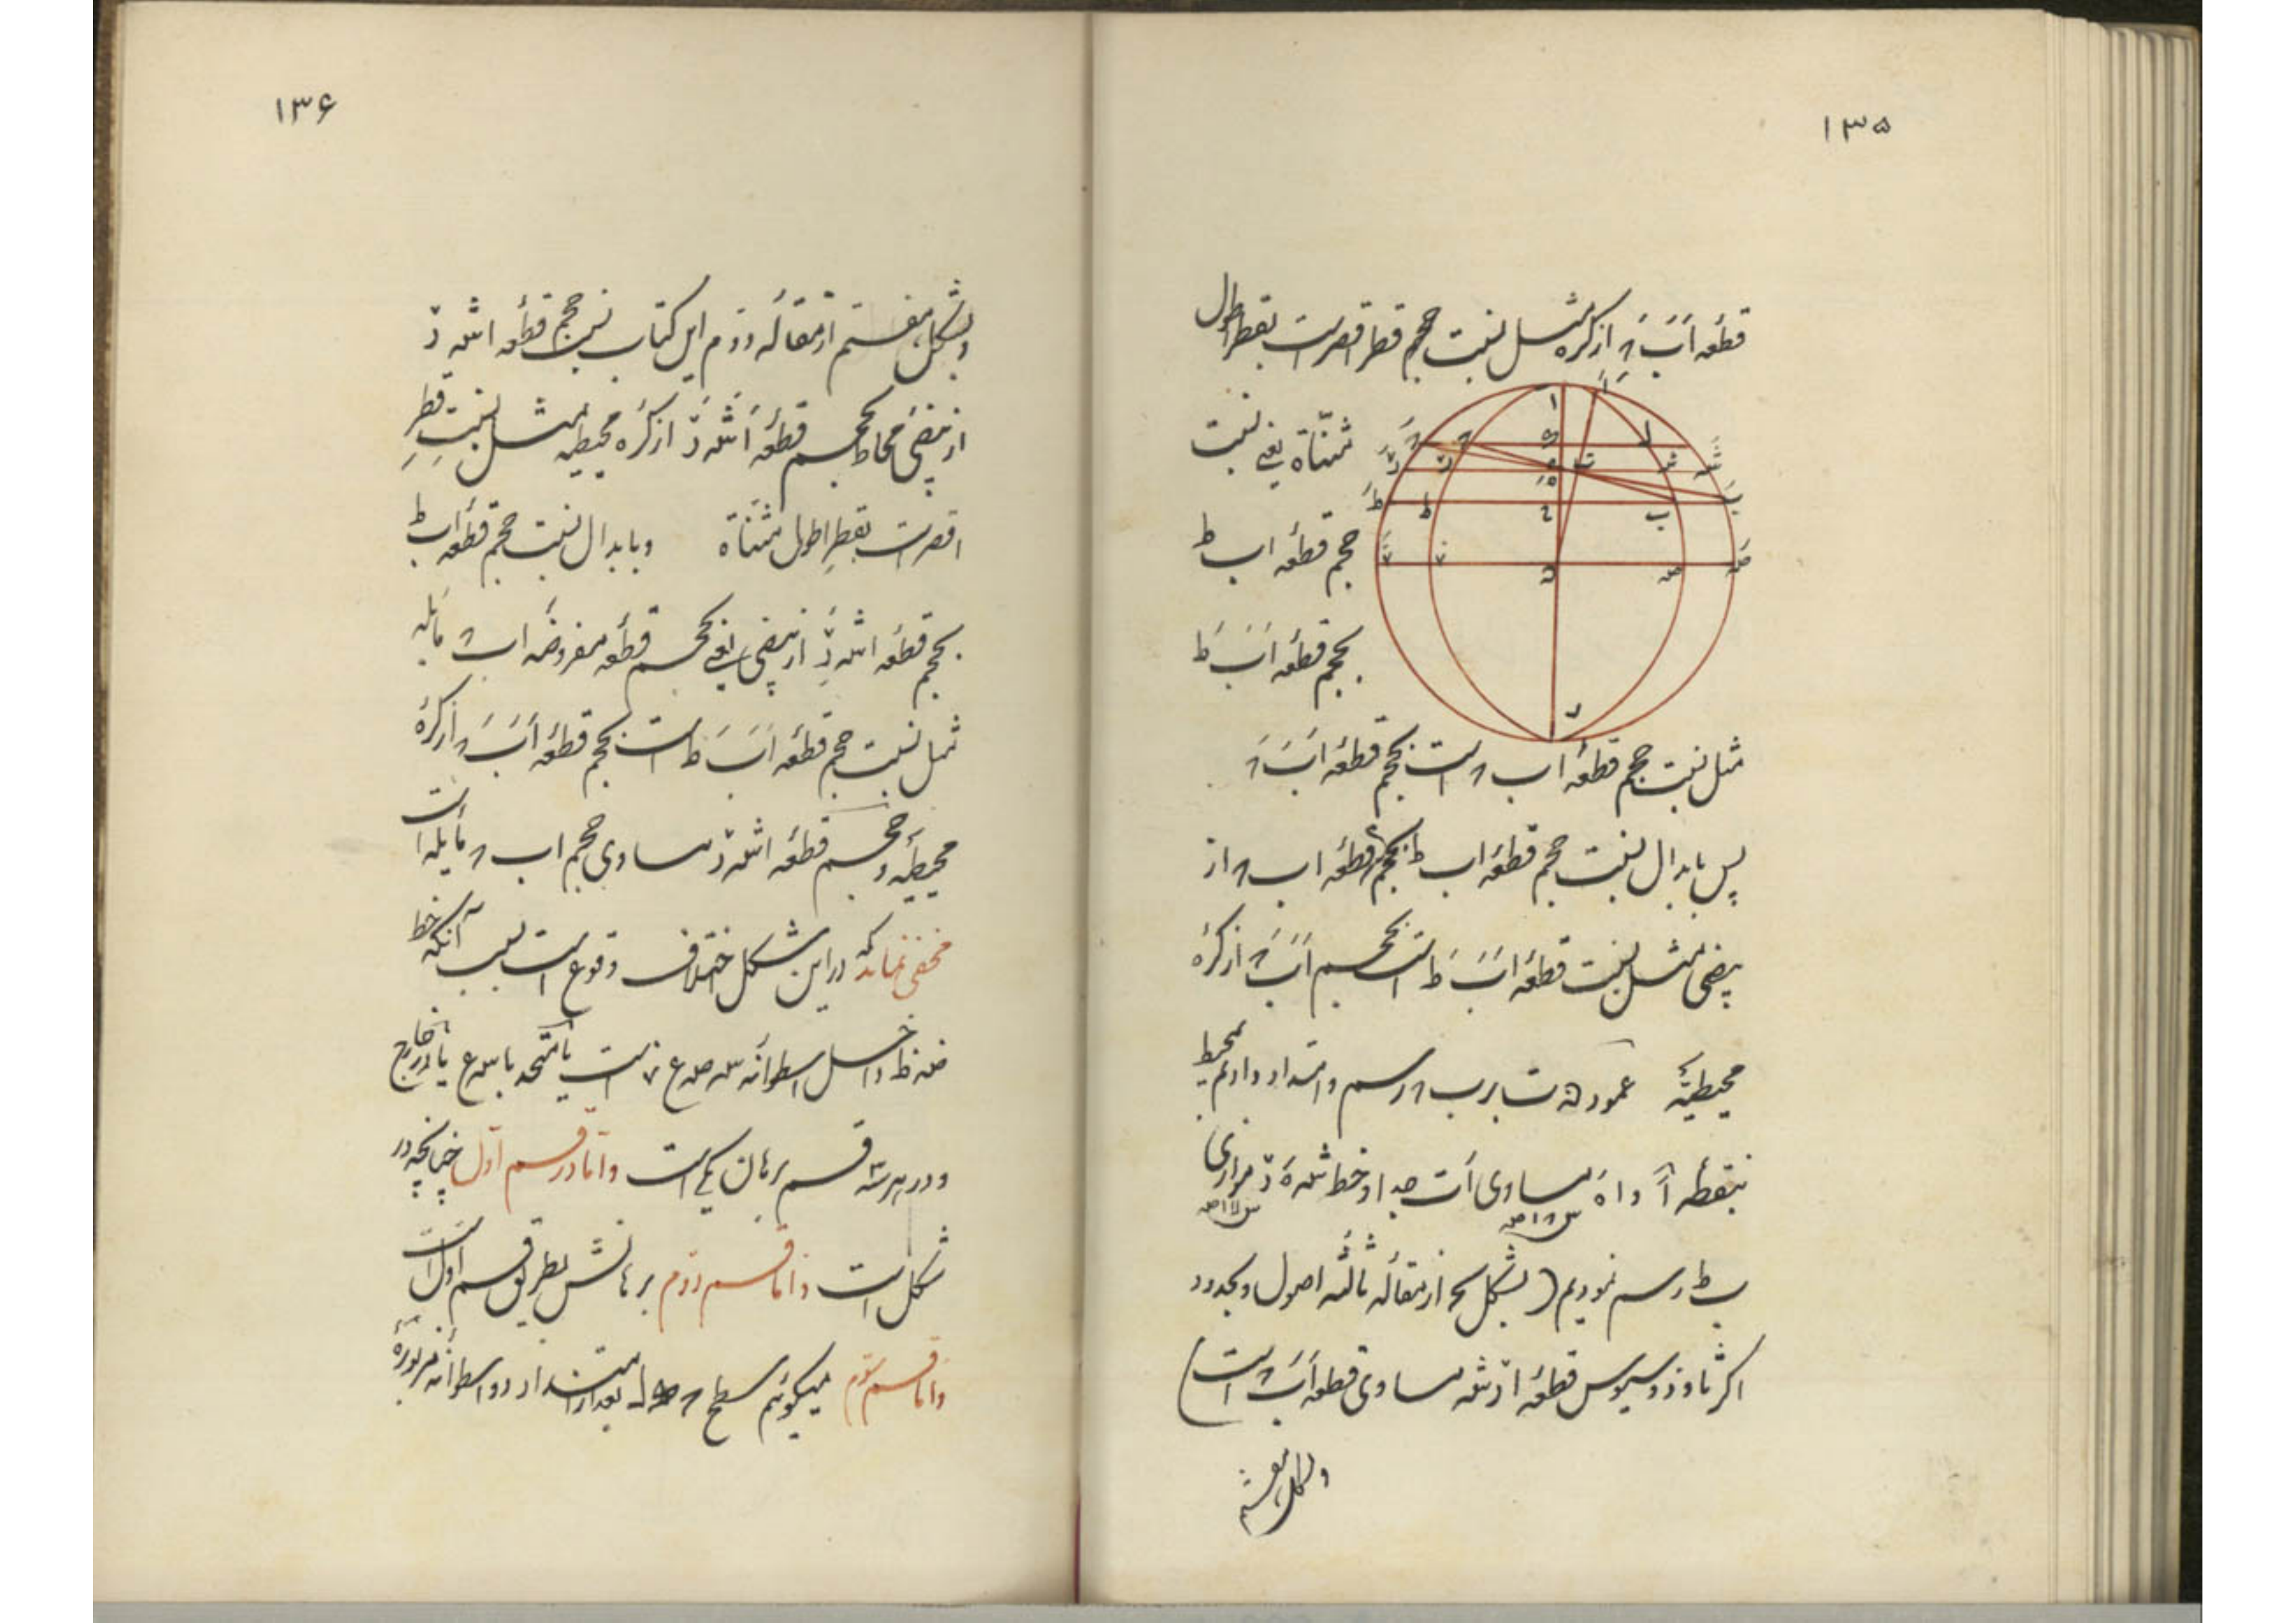 ۱۳۵
قطعه اَبَ‍حَ از کره مثل نسبت حجم قطر اقصرست بقطر اطول
مثنّاة یعنی نسبت
حجم قطعه ا ب ط
بحجم قطعه اَبَ‍طَ
مثل نسبت حجم قطعه ا ب ح است بحجم قطعه اَبَ‍حَ
پس بابدال نسبت حجم قطعه ا ب ط بحجم قطعه ا ب ح از
بیضی مثل نسبت قطعه اَبَ‍طَ است بحجم اَبَ‍حَ از کره
محیطیّه عمود ه ت بر ب ح رسم و امتداد دادیم بمحیط
بنقطه اَ و ا ه مساوی اَت جدا و خط موازی
ب ط رسم نمودیم (بشکل از مقاله ثالثه اصول و بحدود
اکر ثاوذوسیوس قطعه مساوی قطعه اَبَ‍حَ است)
وبشکل هفتم
۱۳۶
وبشکل هفتم از مقاله دوّم این کتاب نسبت حجم قطعه
از بیضی محاط بحجم قطعه از کره محیطیه مثل نسبتِ قطرِ
اقصرست بقطرِ اطول مثنّاة وبابدال نسبت حجم قطعه ا ب ط
بحجم قطعه از بیضی یعنی بحجم قطعه مفروضه ا ب ح مایله
مثل نسبت حجم قطعه اَبَ‍طَ است بحجم قطعه اَبَ‍حَ از کره
محیطیّه و حجم قطعه مساوی حجم ا ب ح مایله است
مخفی نماند که در این شکل اختلاف وقوع است بسبب آنکه خط
داخل اسطوانه است یا متحد با یا در خارج
و در هر سه قسم برهان یکی است و امّا در قسم اوّل چنانچه در
شکل است و امّا قسم دوّم برهانش بطریق قسم اوّل است
و امّا قسم سوّم میکوئیم سطح بعد از امتداد دو اسطوانه مزبوره